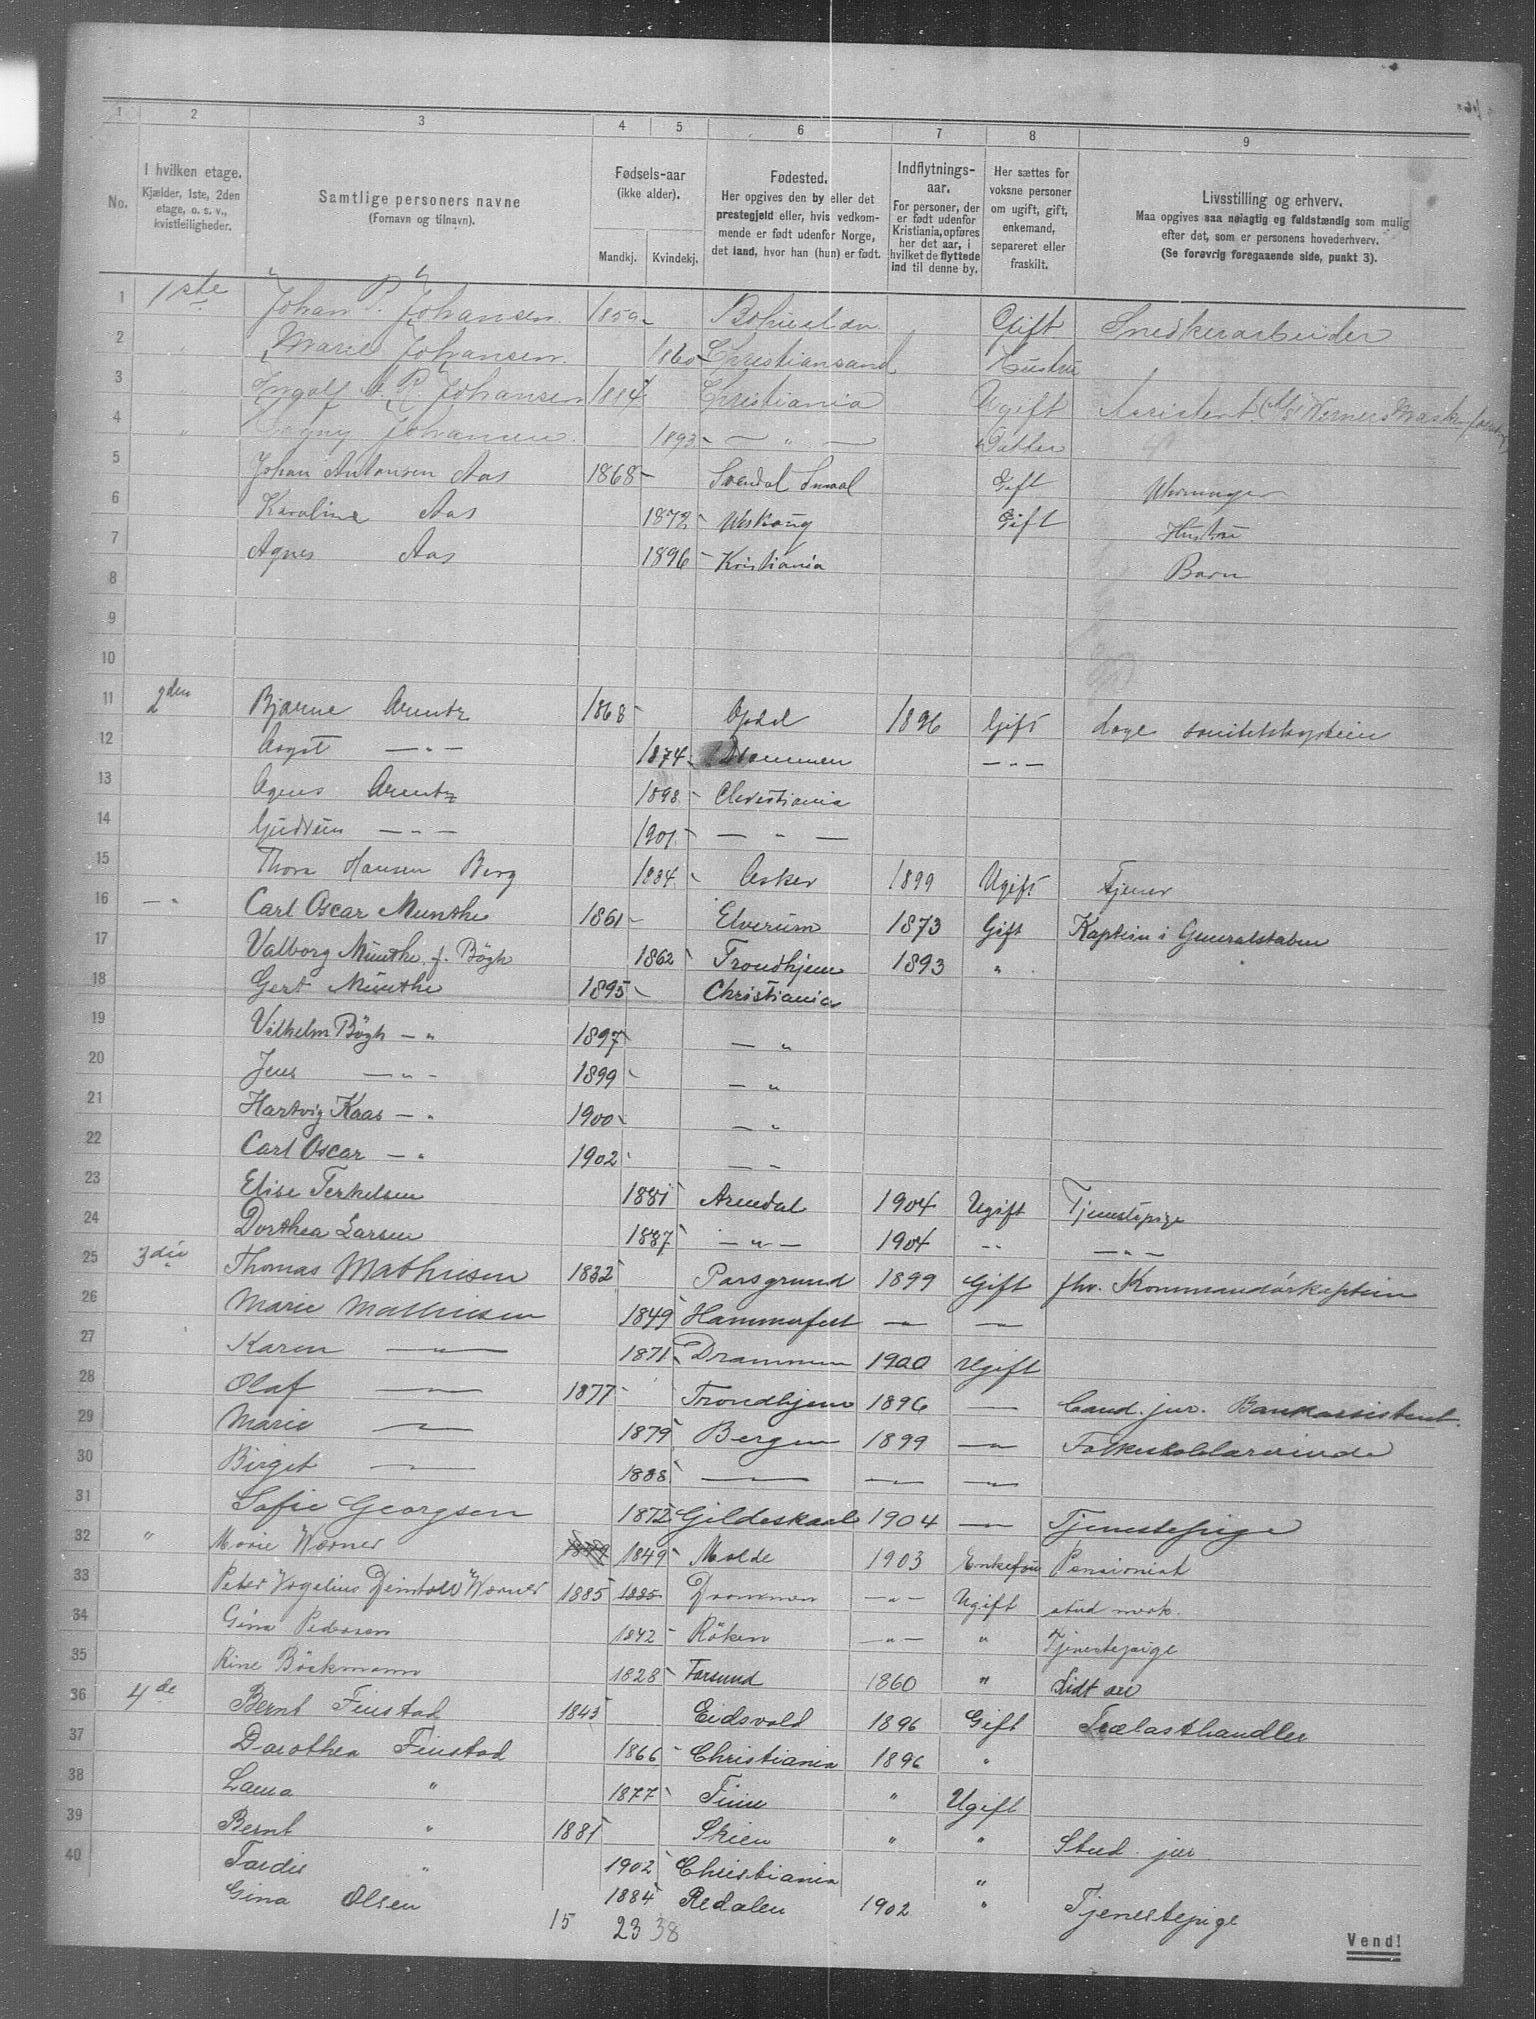 1 2 3 4 5 6 7 8 9
No.
I hvilken etage.
Kjælder, 1ste, 2den
etage, o. s. v.,
kvistleiligheder.
Samtlige personers navne
(Fornavn og tilnavn).
Fødsels-aar
(ikke alder).
Mandkj. Kvindekj.
Fødested.
Her opgives den by eller det
prestegjeld eller, hvis vedkom-
mende er født udenfor Norge,
det land, hvor han (hun) er født.
Indflytnings-
aar.
For personer, der
er født udenfor
Kristiania, opføres
her det aar, i
hvilket de flyttede
ind til denne by.
Her sættes for
voksne personer
om ugift, gift,
enkemand,
separeret eller
fraskilt.
Livsstilling og erhverv.
Maa opgives saa nøiagtig og fuldstændig som mulig
efter det, som er personens hovederhverv.
(Se forøvrig foregaaende side, punkt 3).
1 1ste Johan P. Johansen 1859 Gift Snedkerarbeider
2 " Marie Johansen 1860 Christiansand Hustru
3 " Ingolf R. Johansen 1884 Christiania Ugift Assistent
4 " Dagny Johansen 1893 — " — Datter
5 Johan Antonsen Aas 1868 Gift
6 Karoline Aas 1872 Gift Hustru
7 Agnes Aas 1896 Kristiania Barn
8
9
10
11 2den Bjarne Arentz 1868 Opdal 1896 Gift Læge sanitetskaptein
12 Aagot — " — 1874 Drammen — " —
13 Agnes Arentz 1898 Christiania
14 Gudrun — " — 1901 — " —
15 Thora Hansen Berg 1884 Asker 1899 Ugift Tjener
16 — " Carl Oscar Munthe 1861 Elverum 1873 Gift Kaptein i Generalstaben
17 Valborg Munthe f. Bögh 1862 Trondhjem 1893 "
18 Gert Munthe 1895 Christiania
19 Vilhelm Bögh — " 1897 — "
20 Jens — " — 1899 — "
21 Hartvig Kaas — " 1900 — "
22 Carl Oscar — " 1902 — "
23 Elise Terkelsen 1881 Arendal 1904 Ugift Tjenestepige
24 Dorthea Larsen 1887 — " — 1904 " — " —
25 3die Thomas Mathiesen 1832 Porsgrund 1899 Gift fhv. Kommandörkaptein
26 Marie Mathiesen 1849 Hammerfest — " — — " —
27 Karen — " — 1871 Drammen 1900 Ugift
28 Olaf — " — 1877 Trondhjem 1896 — " — Cand. jur. Bankassistent.
29 Marie — " — 1879 Bergen 1899 — " — Folkeskolelærerinde
30 Birget — " — 1888 — " — — " — — " —
31 Sofie Georgsen 1872 Gildeskaal 1904 — " — Tjenestepige
32 " Marie Wærner 1849 Molde 1903 Enkefru Pensionist
33 Peter Vogelius Wærner 1885 1885 Drammen — " — Ugift stud merk.
34 Gina Pedersen 1842 Röken — " — " Tjenestepige
35 Rine Böckmann 1828 Farsund 1860 "
36 4de Bernt Finstad 1843 Eidsvold 1896 Gift Trælasthandler
37 Dorothea Finstad 1866 Christiania 1896 "
38 Laura " 1877 " Ugift
39 Bernt " 1881 Skien " " Stud. jur.
40 Tordis " 1902 Christiania "
Gina Olsen 1884 Redalen 1902 " Tjenestepige
15 23 38
Vend!